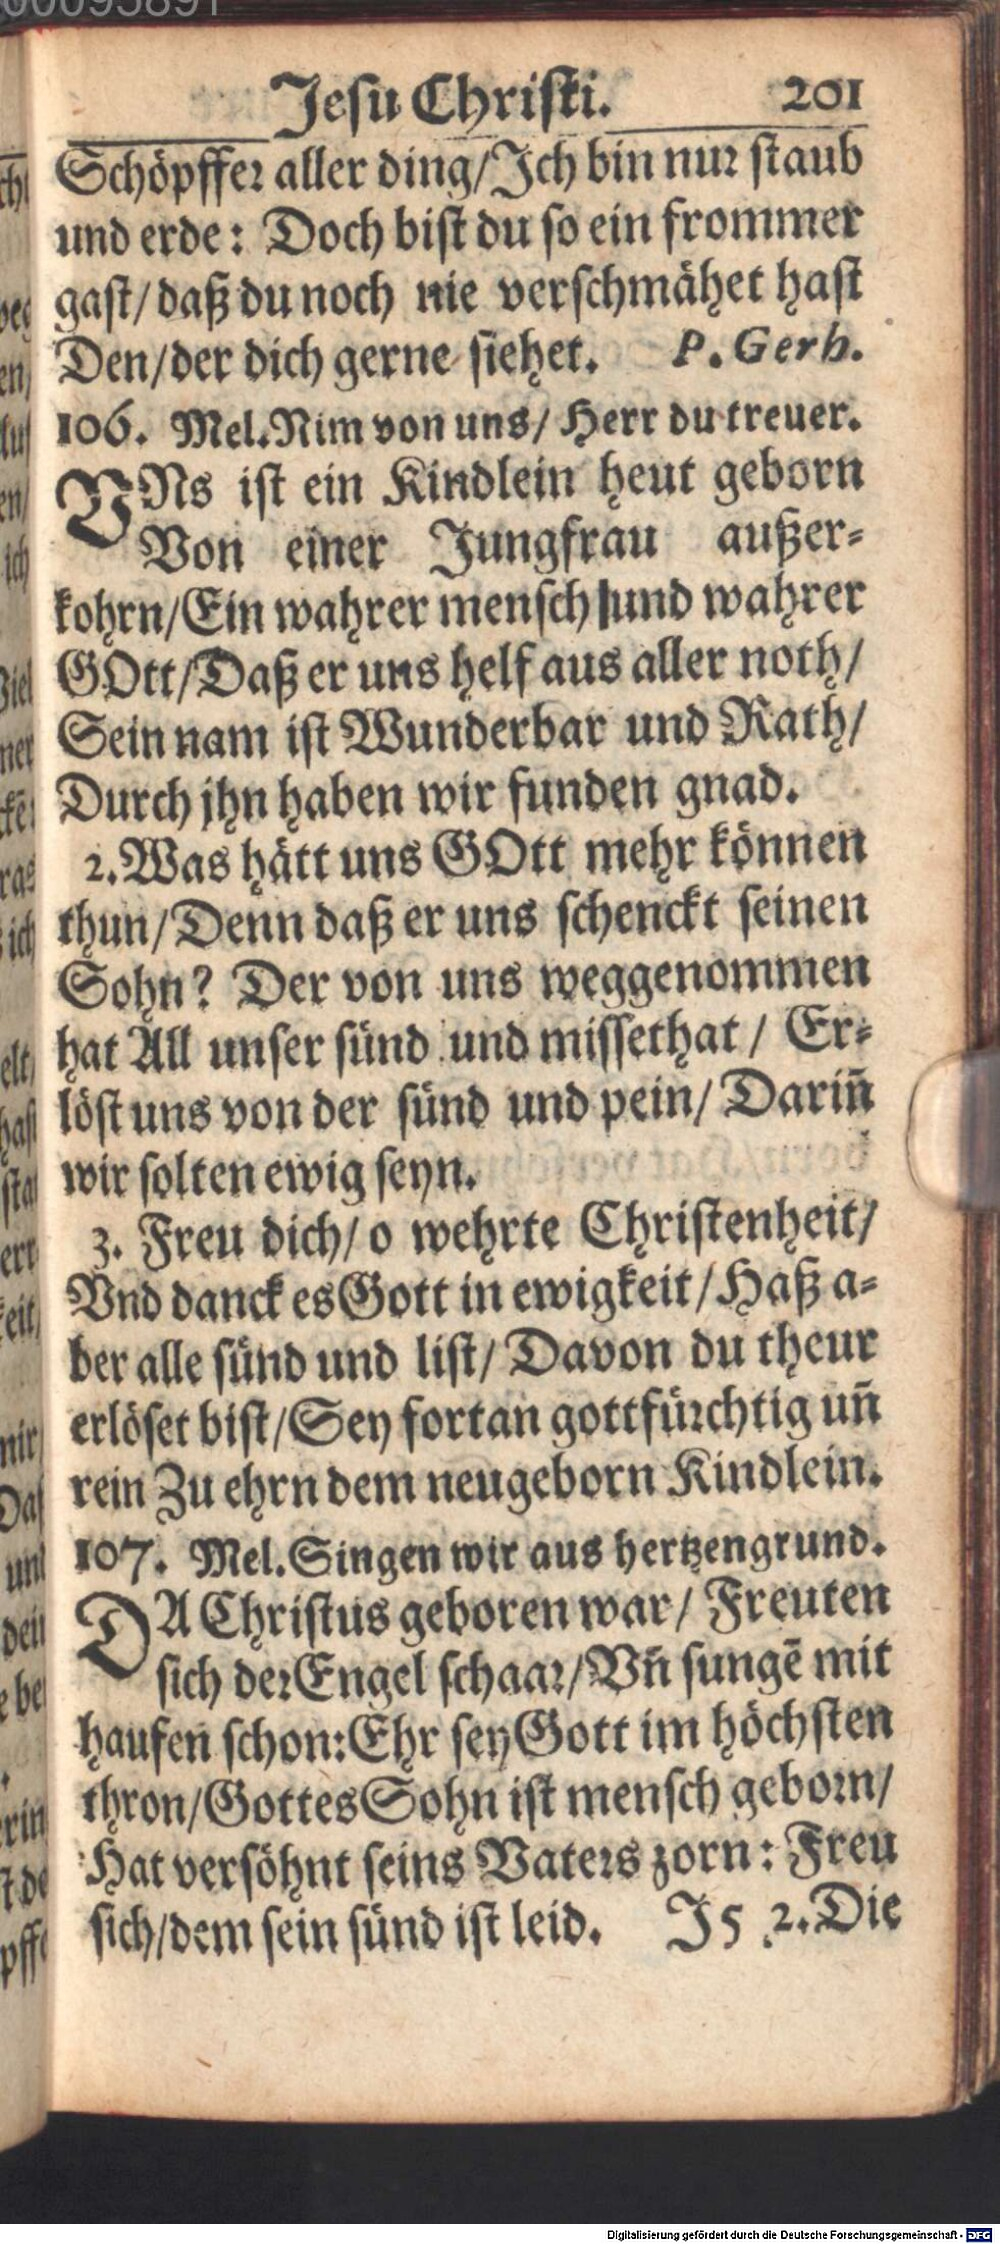 Jesu Christi. 201
Schöpffer aller ding/Ich bin nur staub
und erde: Doch bist du so ein frommer
gast/daß du noch nie verschmähet hast
Den/der dich gerne siehet. P. Gerh.
106. Mel. Nim von uns/ Herr du treuer.
VNs ist ein Kindlein heut geborn
Von einer Jungfrau außer-
kohrn/Ein wahrer mensch und wahrer
GOtt/Daß er uns helf aus aller noth/
Sein nam ist Wunderbar und Rath/
Durch jhn haben wir funden gnad.
2. Was hätt uns GOtt mehr können
thun/Denn daß er uns schenckt seinen
Sohn? Der von uns weggenommen
hat All unser sünd und missethat/ Er-
löst uns von der sünd und pein/ Dariñ
wir solten ewig seyn.
3. Freu dich/o wehrte Christenheit/
Vnd danck es Gott in ewigkeit/Haß a-
ber alle sünd und list/ Davon du theur
erlöset bist/Sey fortan gottfürchtig uñ
rein Zu ehrn dem neugeborn Kindlein.
107. Mel. Singen wir aus hertzengrund.
DA Christus geboren war/ Freuten
sich der Engel schaar/Vñ sungẽ mit
haufen schon: Ehr sey Gott im höchsten
thron/Gottes Sohn ist mensch geborn/
Hat versöhnt seins Vaters zorn: Freu
sich/dem sein sünd ist leid. J5 2. Die
Digitalisierung gefördert durch die Deutsche Forschungsgemeinschaft - DFG